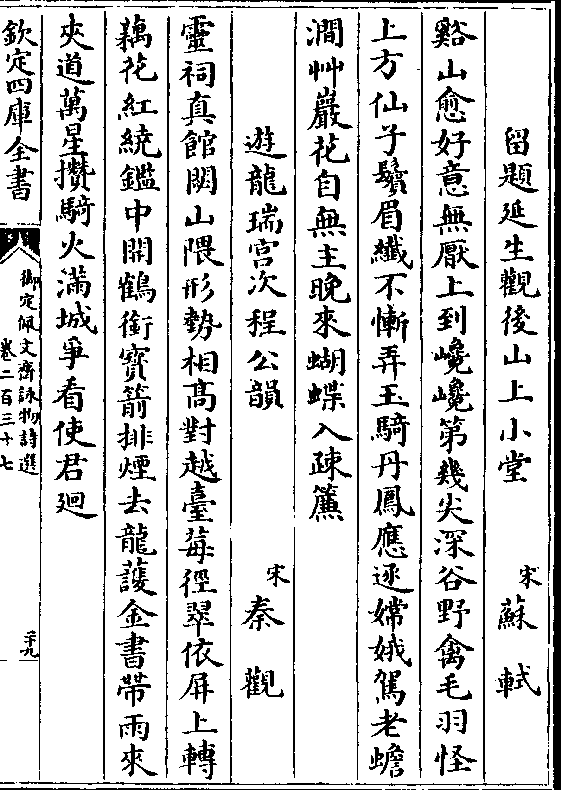 留題延生觀後山上小堂 宋 蘇軾
谿山愈好意無厭上到巉巉第幾尖深谷野禽毛羽怪
上方仙子鬢眉纖不慚弄玉騎丹鳳應逐嫦娥駕老蟾
澗艸巖花自無主晚來蝴蝶入疎簾
遊龍瑞宫次程公韻 宋 秦觀
靈祠真館閟山隈形勢相髙對越臺莓徑翠依屏上轉
藕花紅繞鑑中開鶴銜寳箭排煙去龍護金書帶雨來
夾道萬星攢騎火滿城爭看使君廻
欽定四庫全書
御定佩文齋詠物詩選
卷二百三十七
二十九